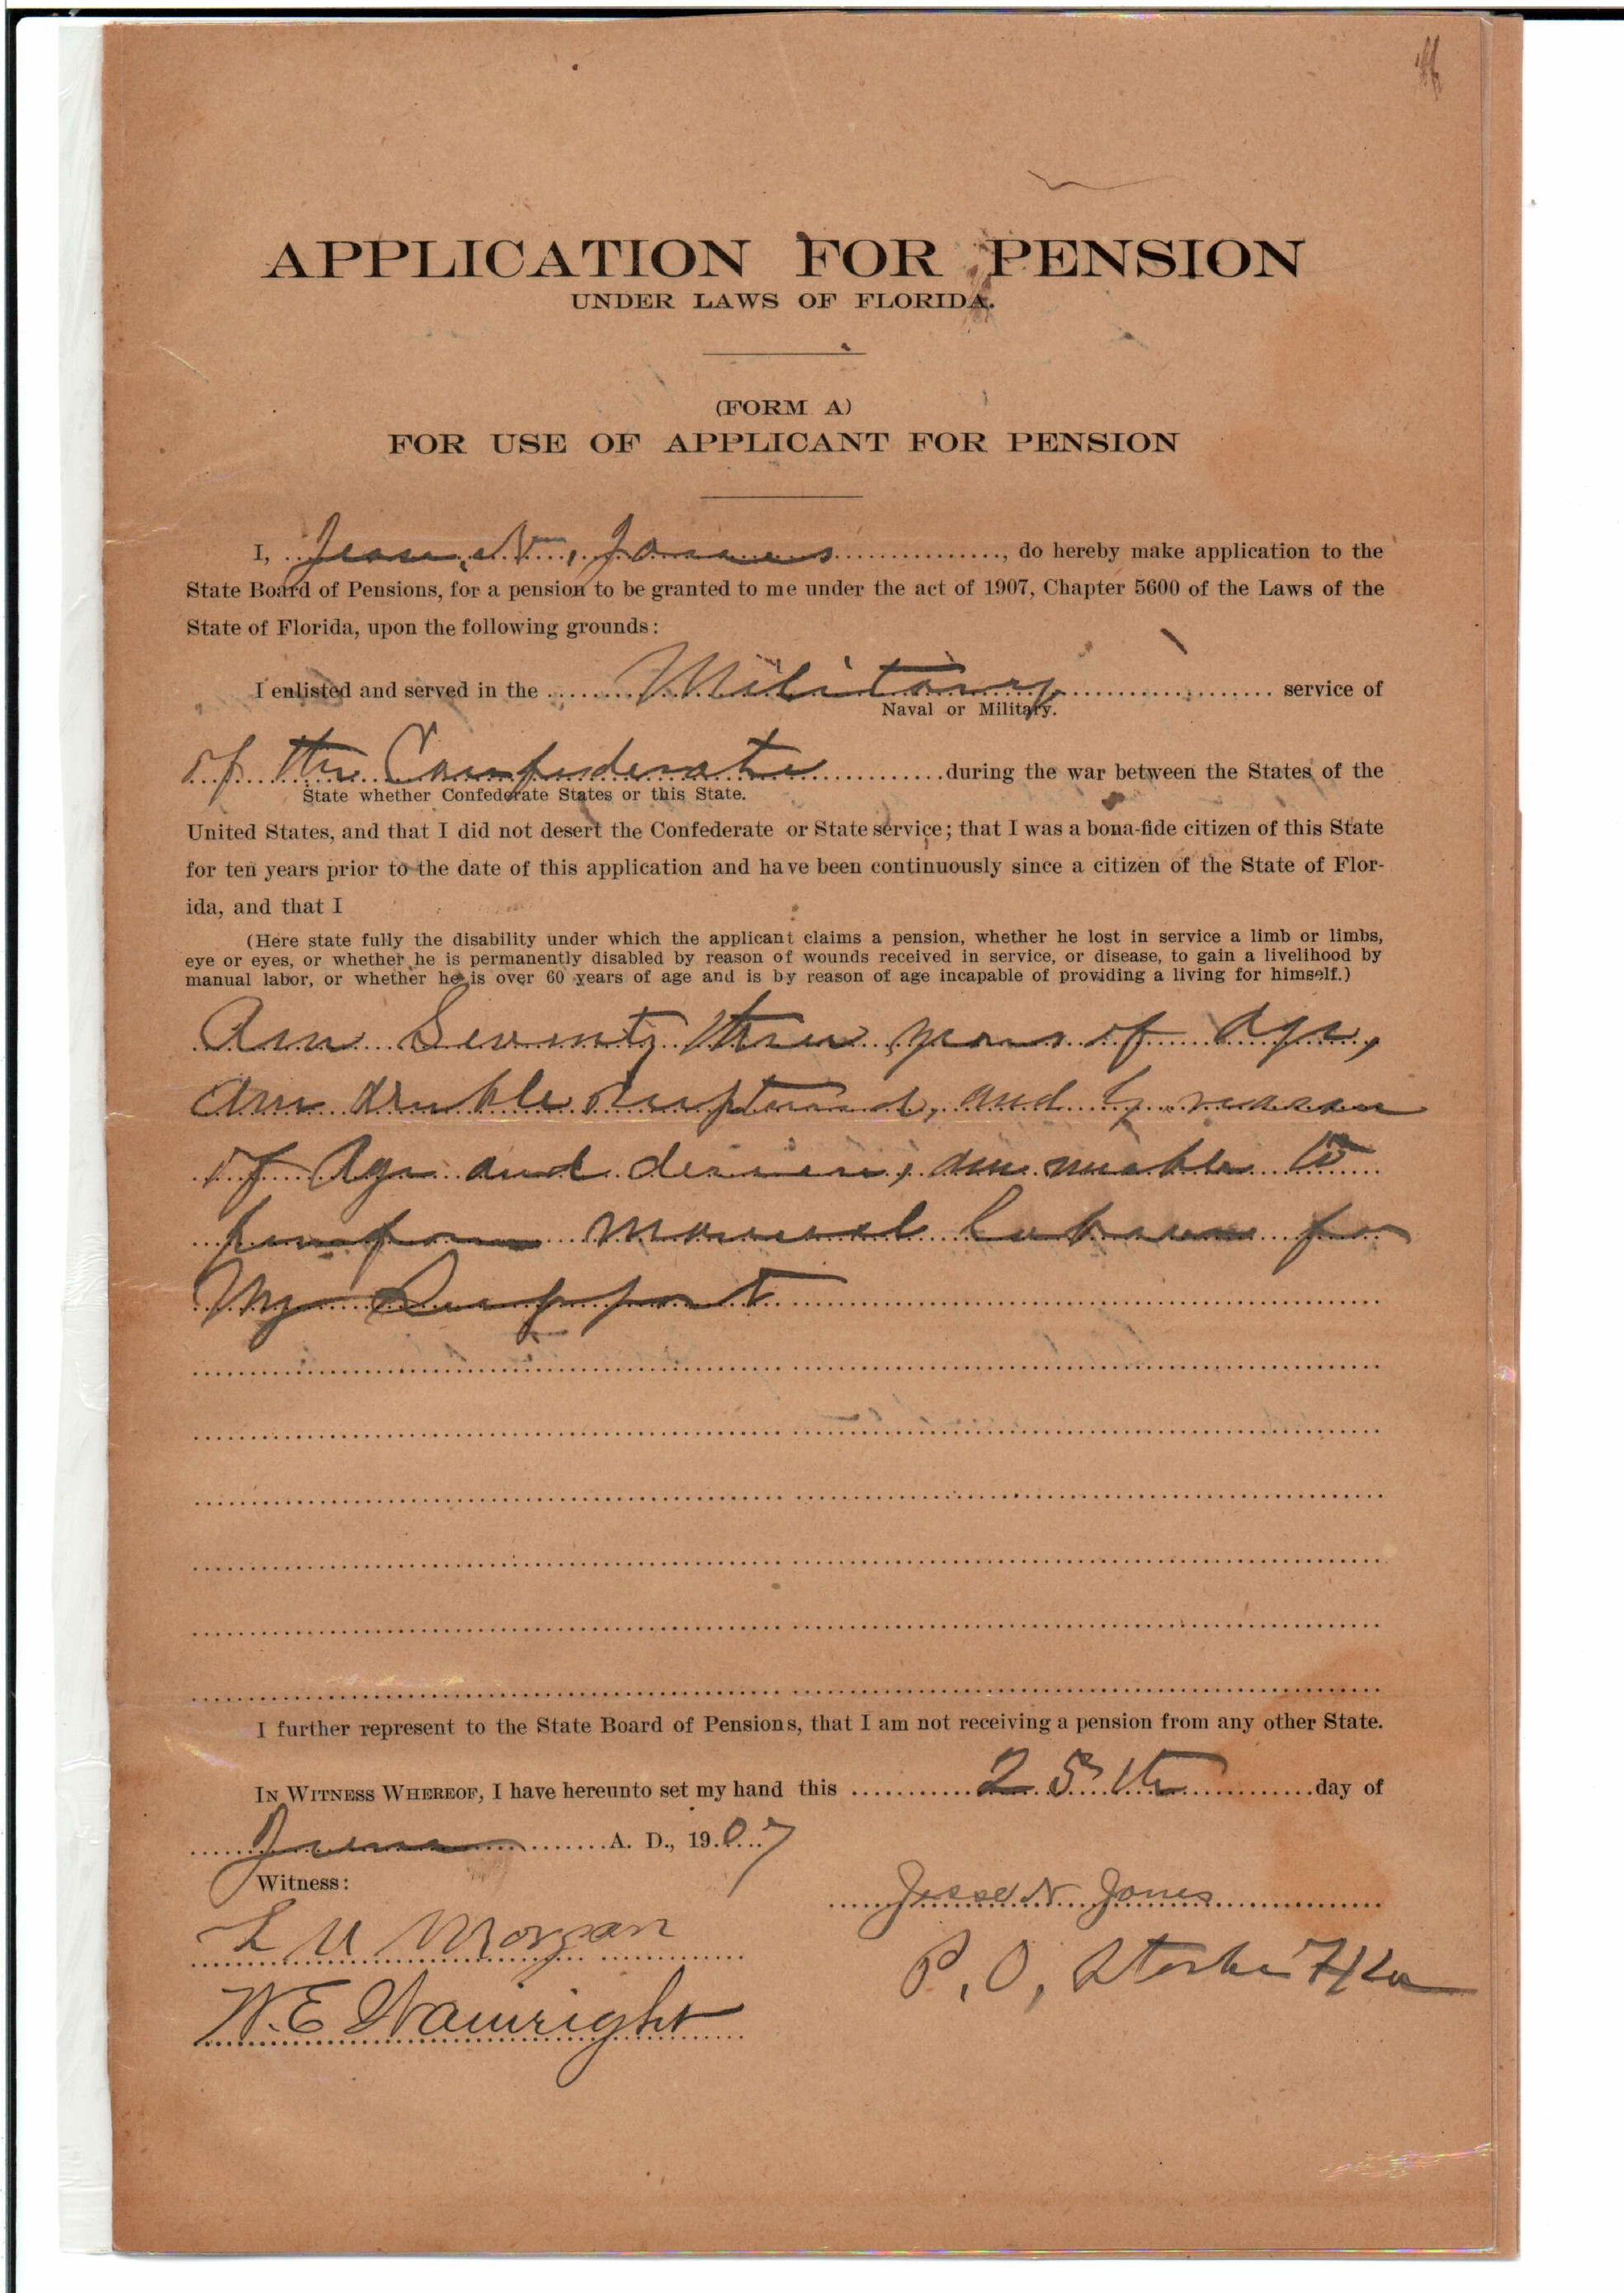 APPLICATION FOR PENSION
UNDER LAWS OF FLORIDA.
(FORM A)
FOR USE OF APPLICANT FOR PENSION
I, Jesse N, Jones, do hereby make application to the
State Board of Pensions, for a pension to be granted to me under the act of 1907, Chapter 5600 of the Laws of the
State of Florida, upon the following grounds:
I enlisted and served in the Military service of
Naval or Military.
of the Confederate during the war between the States of the
State whether Confederate States or this State.
United States, and that I did not desert the Confederate or State service; that I was a bona-fide citizen of this State
for ten years prior to the date of this application and have been continuously since a citizen of the State of Flor-
ida, and that I
(Here state fully the disability under which the applicant claims a pension, whether he lost in service a limb or limbs,
eye or eyes, or whether he is permanently disabled by reason of wounds received in service, or disease, to gain a livelihood by
manual labor, or whether he is over 60 years of age and is by reason of age incapable of providing a living for himself.)
Am Seventy three years of Age,
Am double ruptured, and by reason
of Age and disease, am unable to
perform manual labour for
My Support
I further represent to the State Board of Pensions, that I am not receiving a pension from any other State.
IN WITNESS WHEREOF, I have hereunto set my hand this 25th day of
June A. D., 1907
Witness:
Jesse N Jones
L M Morgan
P. O, Starke Fla
W. E Wainright